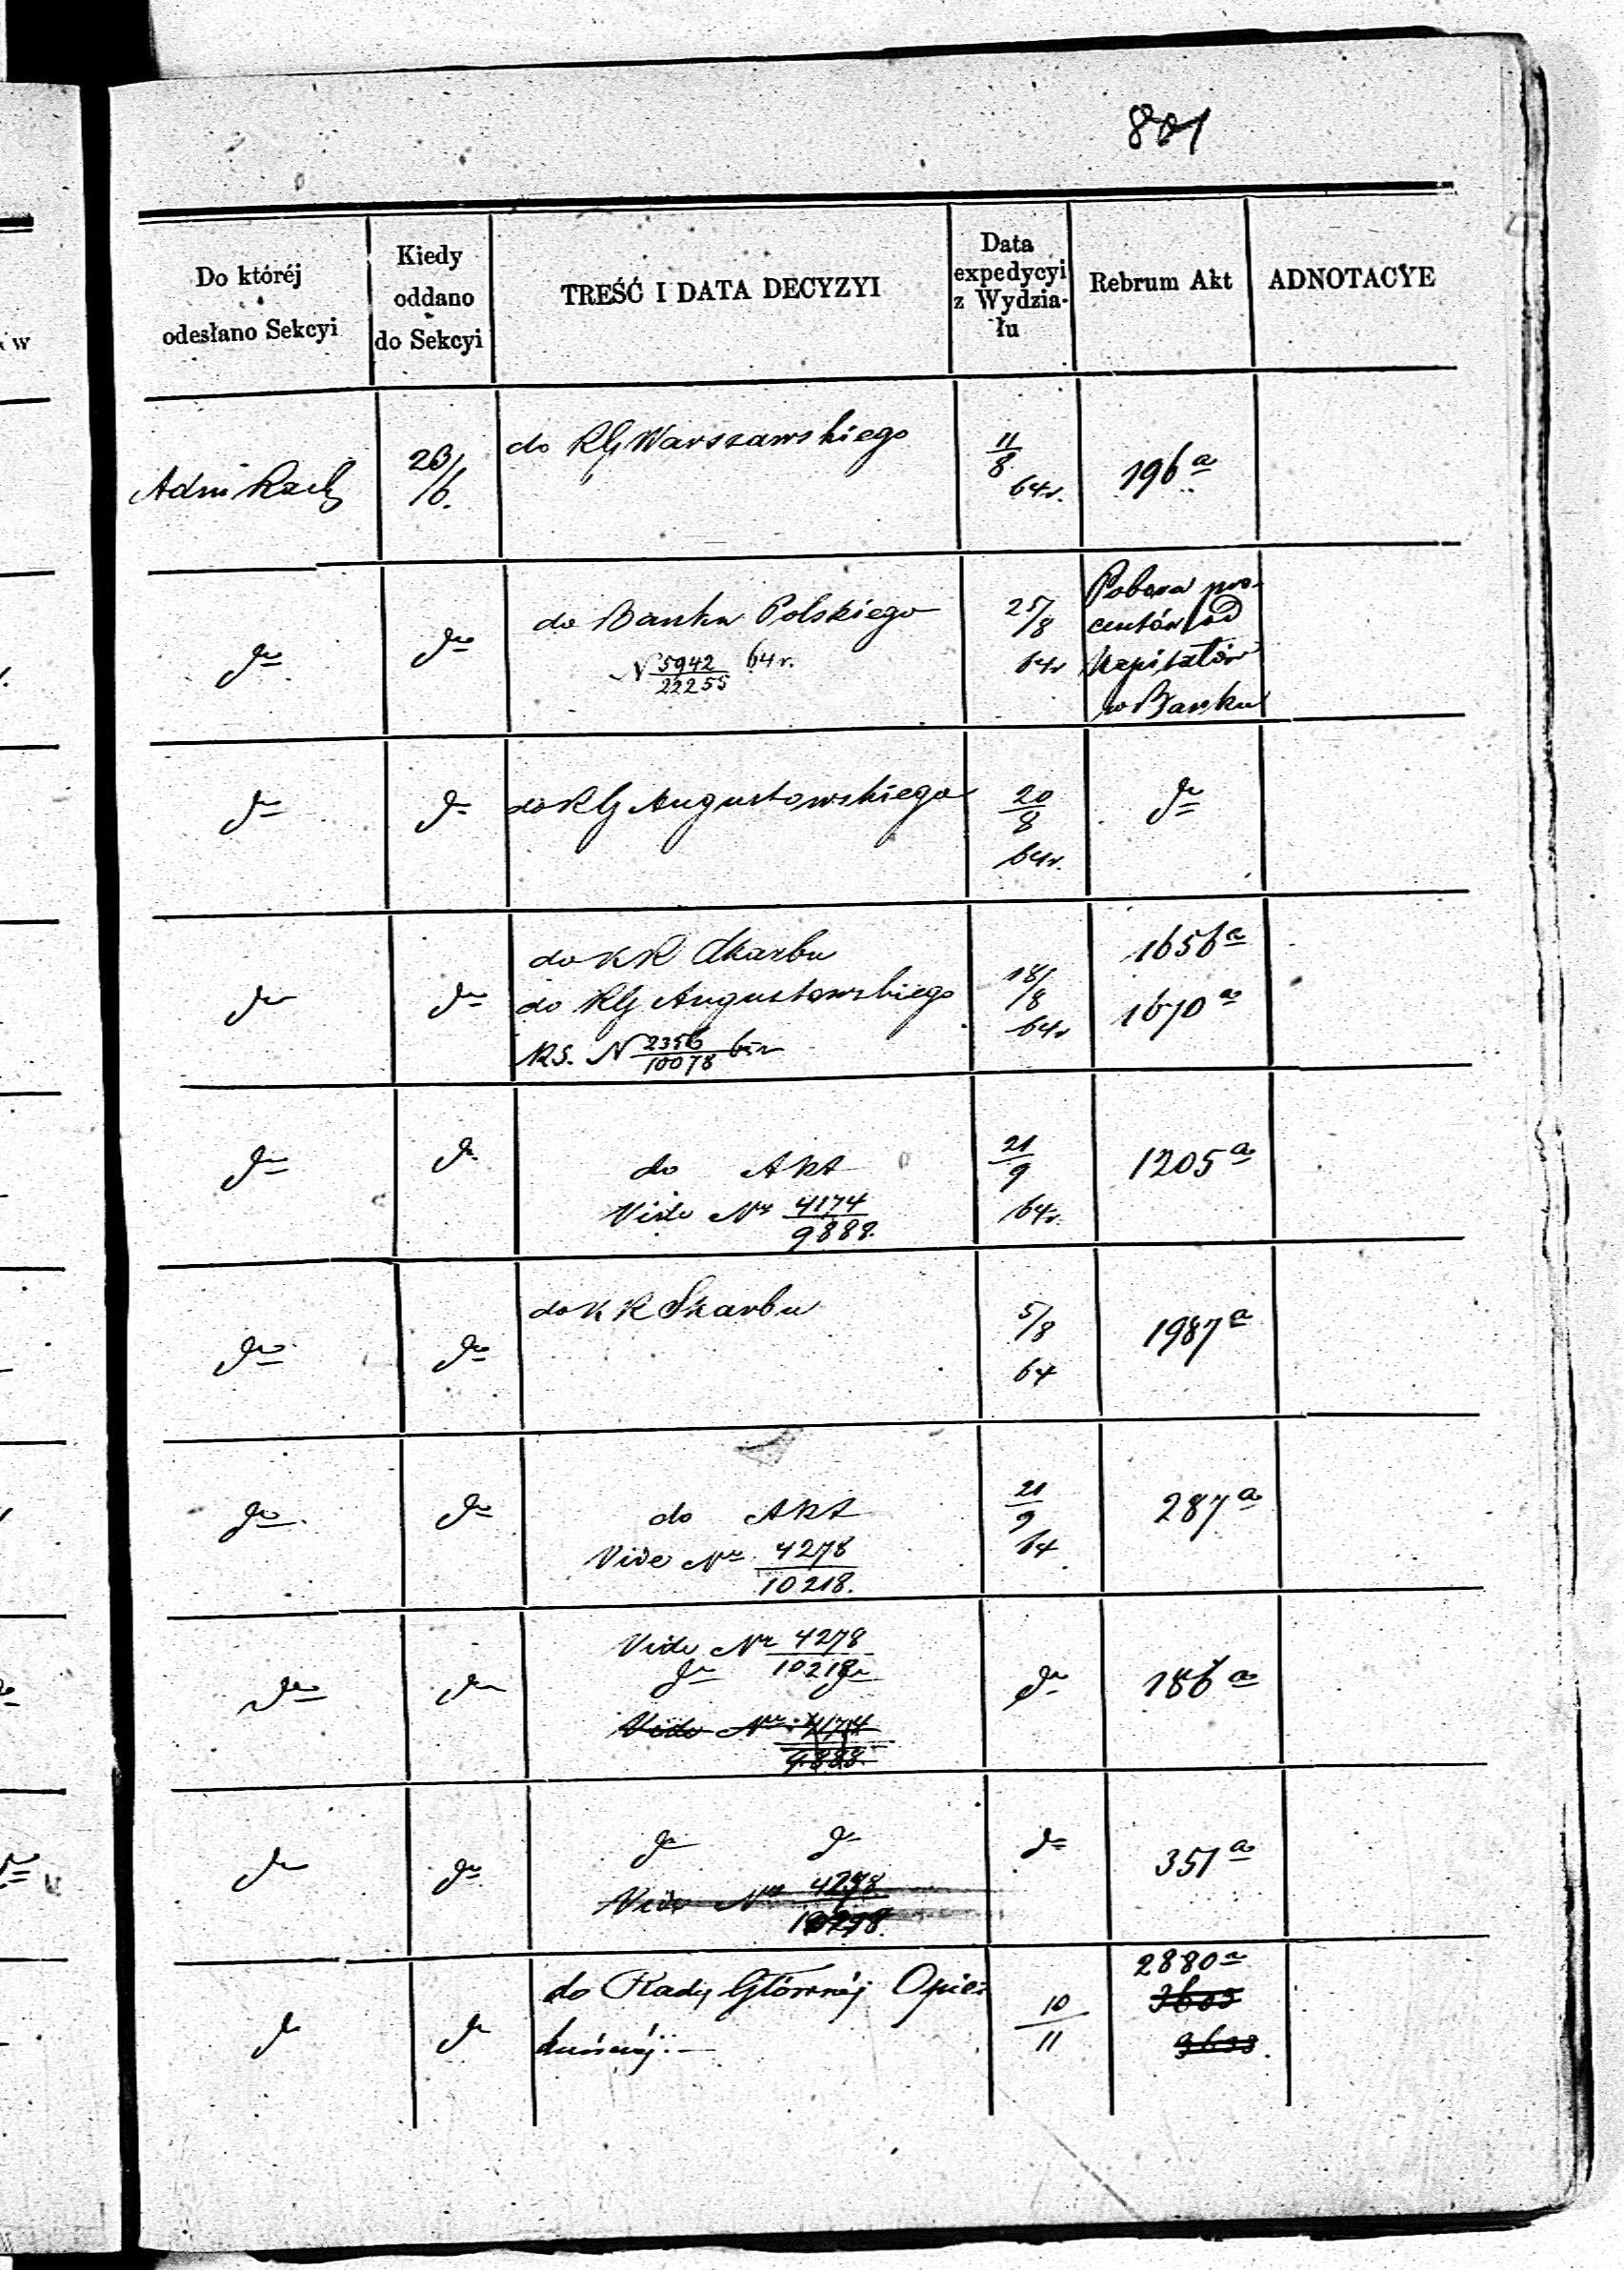 801
Do któréj
odesłano Sekcyi
Kiedy
oddano
do Sekcyi
TREŚĆ I DATA DECYZYI
Data
expedycyi
z Wydzia-
łu
Rebrum Akt
ADNOTACYE
23/6.
do RG Warszawskiego
11/8
64r.
196 a
do
do
do Banku Polskiego
N 5942/22255 64r.
25/8
64r
Pobora pro-
centów od
kapitałów
w Banku
do
do
do RG Augustowskiego
20/8
64r.
do
do
do
do KR Skarbu
do RG Augustowskiego
RS. N 2356/10078
18/8
64r
1656 a
1670 a
do
do
do Akt
Vide Nr 4174/9888.
21/9
64r.
1205 a
do
do
do KR Skarbu
5/8
64
1987 a
do
do
do Akt
Vide Nr 4278/10218.
21/9
64
287 a
do
do
Vide Nr 4278/10218
do do
Vide Nr 4174/9888.
do
186 a
do
do
do do
Vide Nr 4278
do
351 a
do
do
do Rady Głównéj Opie-
kuńczéj.—
10/11
2880 a